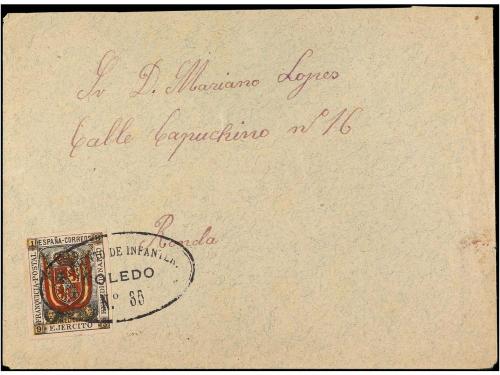 Sr D. Mariano Lopes
Calle Capuchino nº 16
Ronda
ESPAÑA-CORREOS
FRANQUICIA-POSTAL
EJERCITO
DE INFANTER.
TOLEDO
N.º 35